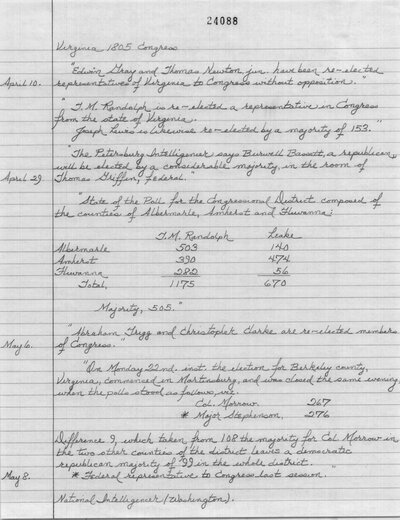 24088
Virginia 1805 Congress
"Edwin Gray and Thomas Newton jun. have been re-elected
April 10. representatives of Virginia to Congress without opposition."
"T. M. Randolph is re-elected a representative in Congress
from the state of Virginia.
Joseph Lewis is likewise re-elected by a majority of 153."
"The Petersburg Intelligencer says Burwell Bassett, a republican,
will be elected by a considerable majority, in the room of
April 29. Thomas Griffin, federal."
"State of the Poll for the Congressional District composed of
the counties of Albermarle, Amherst and Fluvanna:
T. M. Randolph Leake
Albermarle 503 140
Amherst 390 474
Fluvanna 282 56
Total, 1175 670
Majority, 505."
"Abraham Trigg and Christopher Clarke are re-elected members
May 6. of Congress."
"On Monday 22nd. inst. the election for Berkeley county,
Virginia, commenced in Martinsburg, and was closed the same evening
when the polls stood as follows, viz.
Col. Morrow 267
* Major Stephenson, 276
Difference 9, which taken from 108 the majority for Col. Morrow in
the two other counties of the district leaves a democratic
republican majority of 99 in the whole district.
May 8. * Federal representative to Congress last session."
National Intelligencer (Washington).